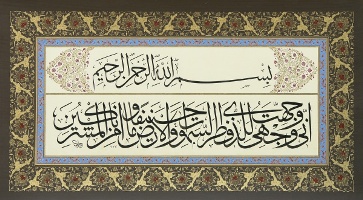 بسم الله الرحمن الرحيم
انى وجهت وجهى للذى فطر السموات والارض حنيفا وما انا من المشركين